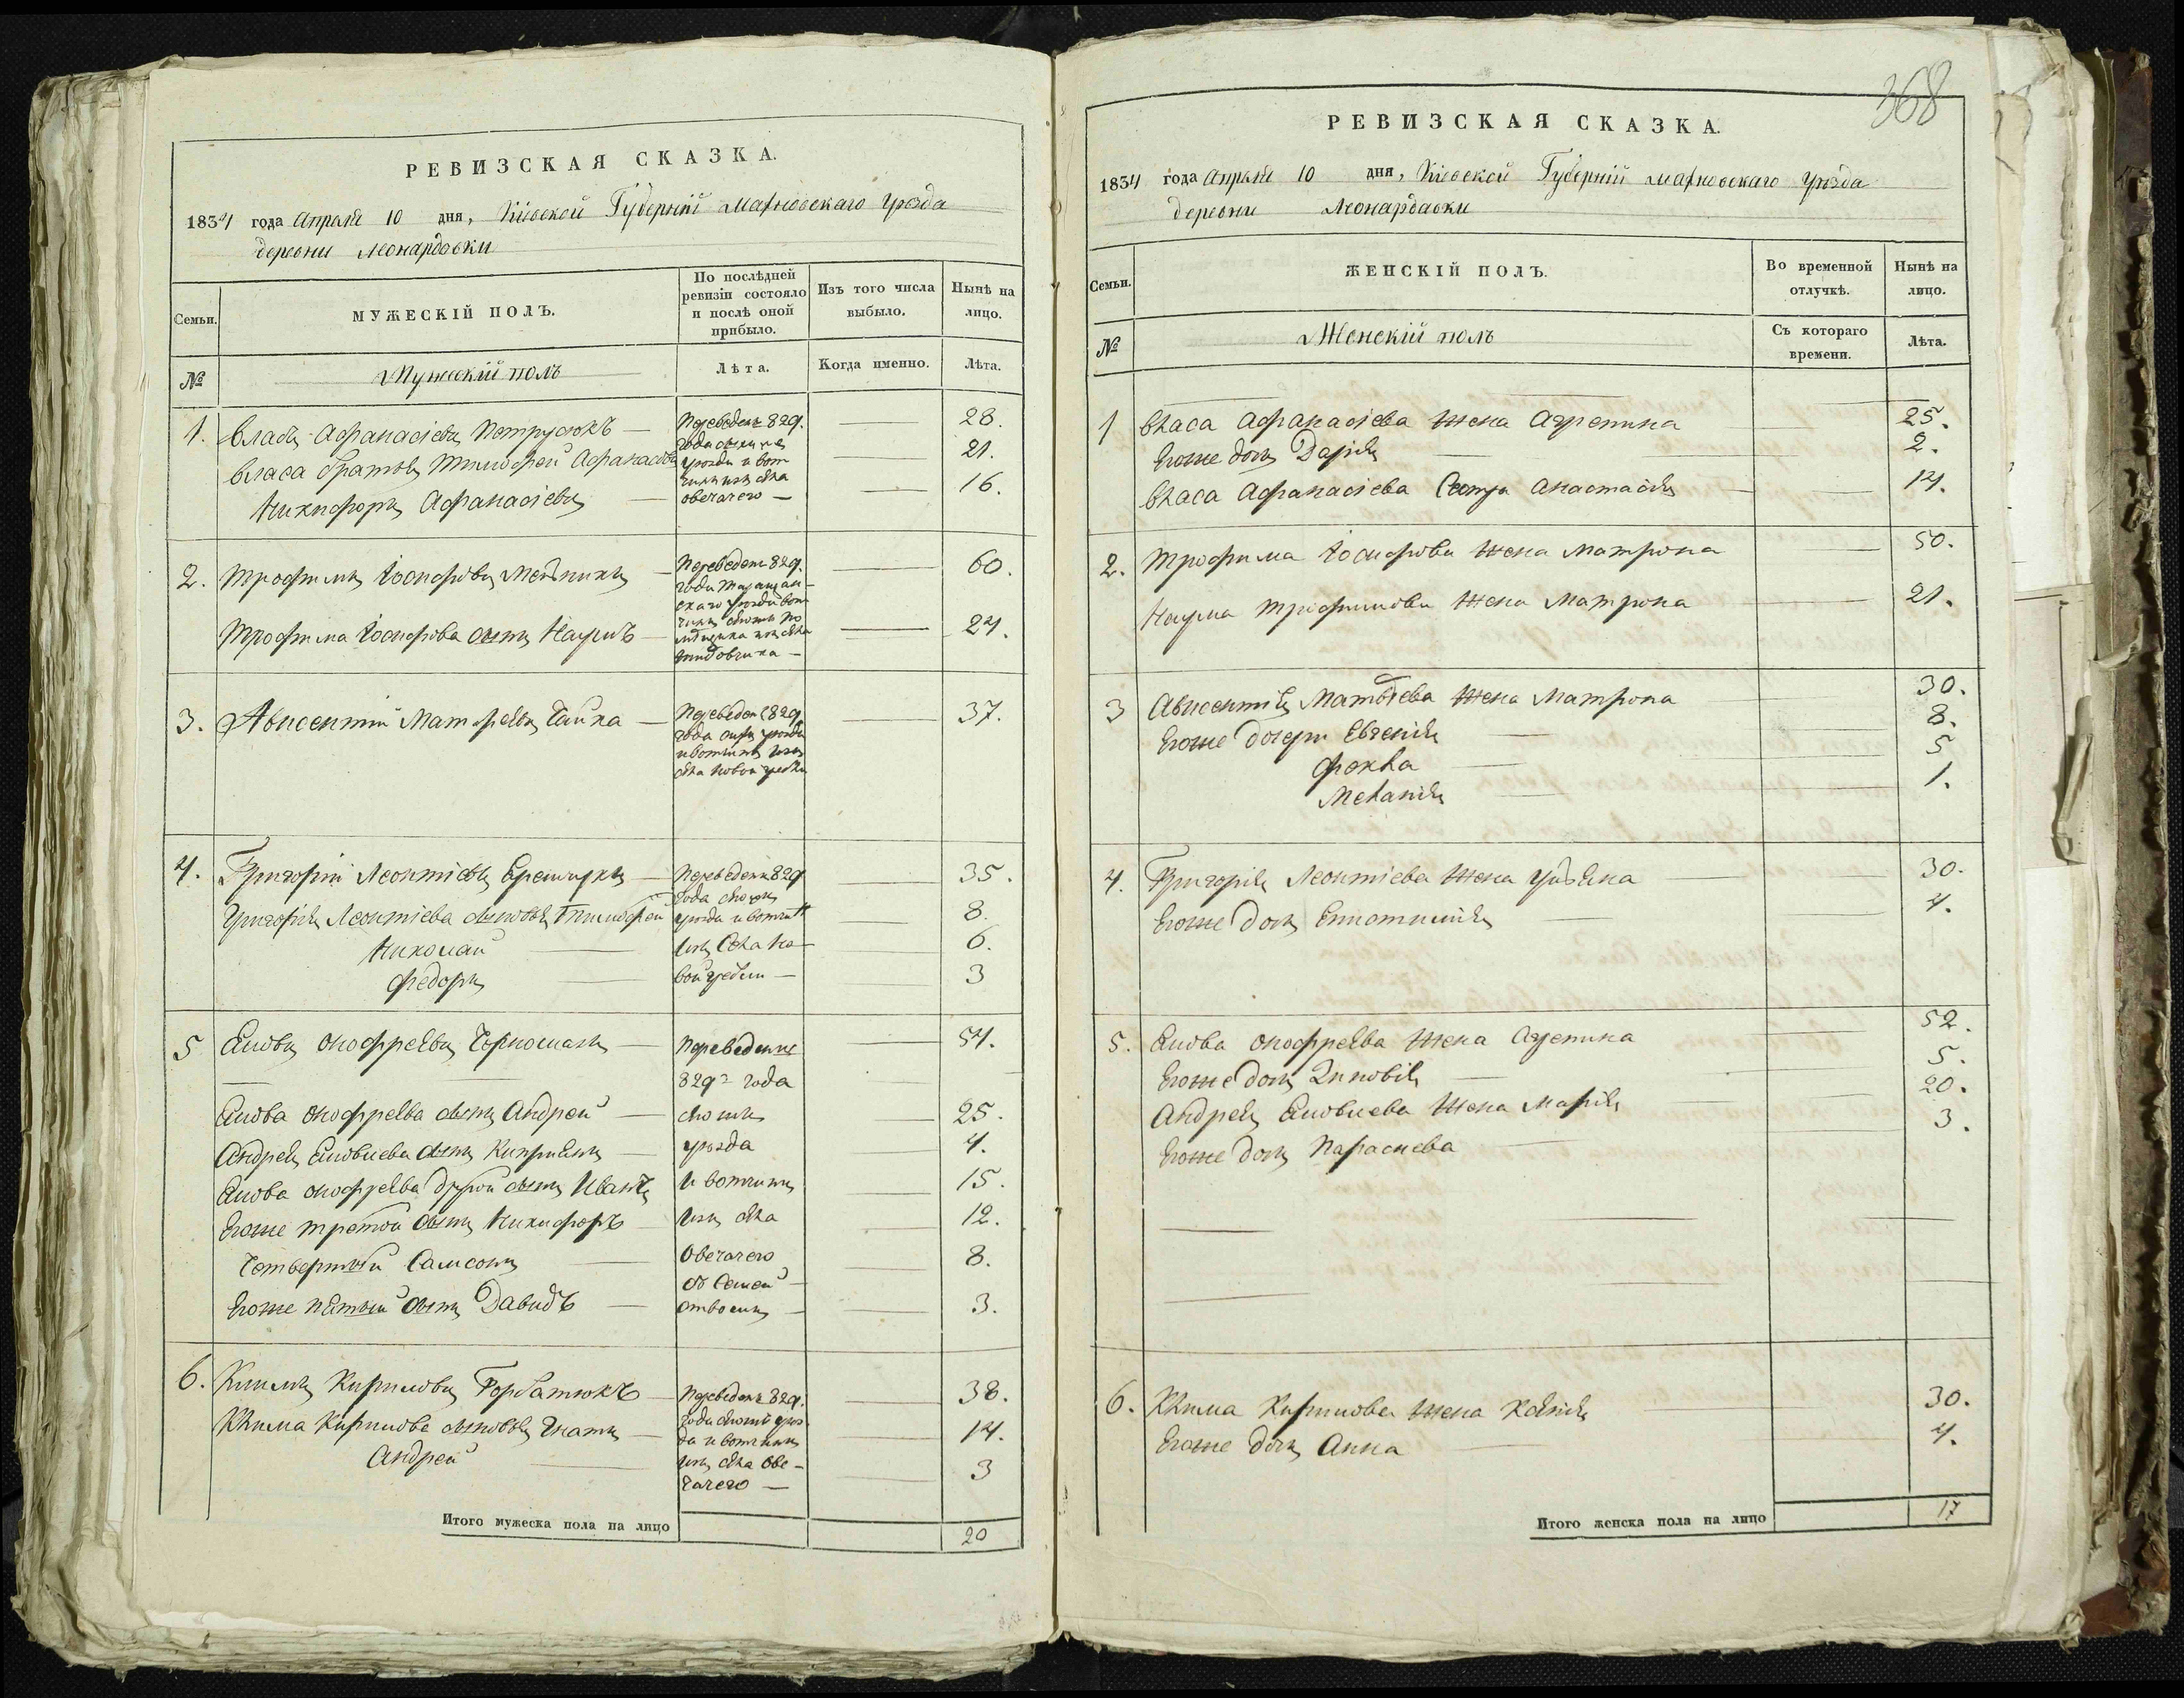 РЕВИЗСКАЯ СКАЗКА.
1834 года Апреля 10 дня, Кіевской Губерніи Махновскаго уезда
деревни Леонардовки
Семьи.
МУЖЕСКІЙ ПОЛЪ.
По послѣдней ревизіи состояло и послѣ оной прибыло.
Изъ того числа выбыло.
Нынѣ на лицо.
№
Мужескій полъ
Лѣта.
Когда именно.
Лѣта.
1. Власъ Афанасіевъ Петрусюкъ — Переведенъ 829. — 28.
Власа братья Тимофей Афанасіевъ — 21.
Никифоръ Афанасіевъ — Овечачего — 16.
2. Трофимъ Іосифовъ Мельникъ — Переведен 829. — 60.
Трофима Іосифова сынъ Наумъ — 24.
3. Авксентій Матфеевъ Чайка — Переведен 829 — 37.
года
села Новой гребли
4. Григорій Леонтіевъ — Переведенъ 829 — 35.
Григорія Леонтіева сыновья Тимофей — уезда и вотчин — 8.
Николай — изъ села Но — 6.
Федоръ — вой гребли — 3
5 Яковъ Онофреевъ — Переведенные — 54.
829го года
Якова Онофреева сынъ Андрей — 25.
Андрея Яковлева сынъ Кипріянъ — уезда — 4.
Якова Онофреева другой сынъ Иванъ — и вотчины — 15.
Егоже третій сынъ Никифоръ — изъ села — 12.
Четвертый Самсонъ — Овечачего — 8.
Егоже пятый сынъ Давидъ — 3.
6. Климъ Кириловъ Горбатюкъ — Переведенъ 829. — 38.
Клима Кирилова сыновья Игнатъ — да и вотчины — 14.
Андрей — изъ села Ове- — 3
чачего —
Итого мужеска пола на лицо 20
368
РЕВИЗСКАЯ СКАЗКА.
1834 года Апреля 10 дня, Кіевской Губерніи Махновскаго уезда
деревни Леонардовки
Семьи.
ЖЕНСКІЙ ПОЛЪ.
Во временной отлучкѣ.
Нынѣ на лицо.
№
Женскій полъ
Съ котораго времени.
Лѣта.
1 Власа Афанасіева жена Агрепина — 25.
Егоже дочь Дарія — 2.
Власа Афанасіева Сестра Анастасія — 14.
2. Трофима Іосифова жена Матрона — 50.
Наума Трофимова жена Матрона — 21.
3 Авксентія Матфеева жена Матрона — 30.
Егоже дочери Евгенія — 8.
Фекла — 5
Меланія — 1.
4. Григорія Леонтіева жена Ульяна — 30.
Егоже дочь — 4.
5. Якова Онофреева жена Агрепина — 52.
Егоже дочь Зиновія — 5.
Андрея Яковлева жена Марія — 20.
Егоже дочь Параскева — 3.
6. Клима Кирилова жена Ксенія — 30.
Егоже дочь Анна — 4.
Итого женска пола на лицо 17